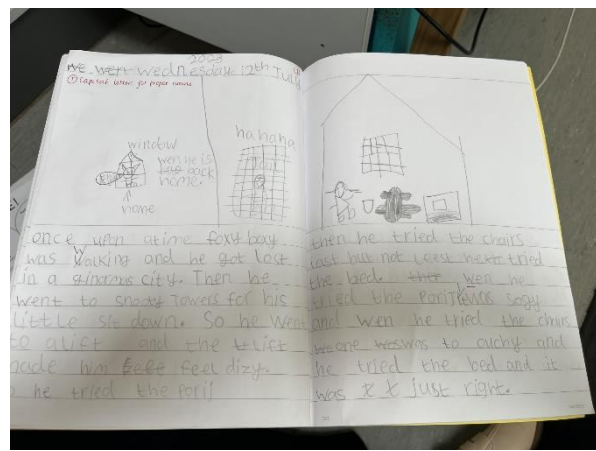 2023
We went Wednesday 12th July
① Capital letters for proper nouns
window
wen he is
back
home.
hahaha
once upon atime foxy boy
was walking and he got lost
in a ginormus city. Then he
went to snooty Towers for his
little sit down. So he went
to a lift and the lift
made him feel dizy.
he tried the porij
then he tried the chairs
last but not least he tried
the bed. wen he
tried the porij it was sogy
and wen he tried the chairs
one was to ouchy and
he tried the bed and it
was just right.